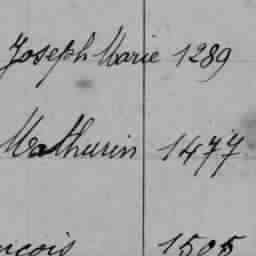 Joseph Marie 1289
Mathurin 1477
ncois 1505